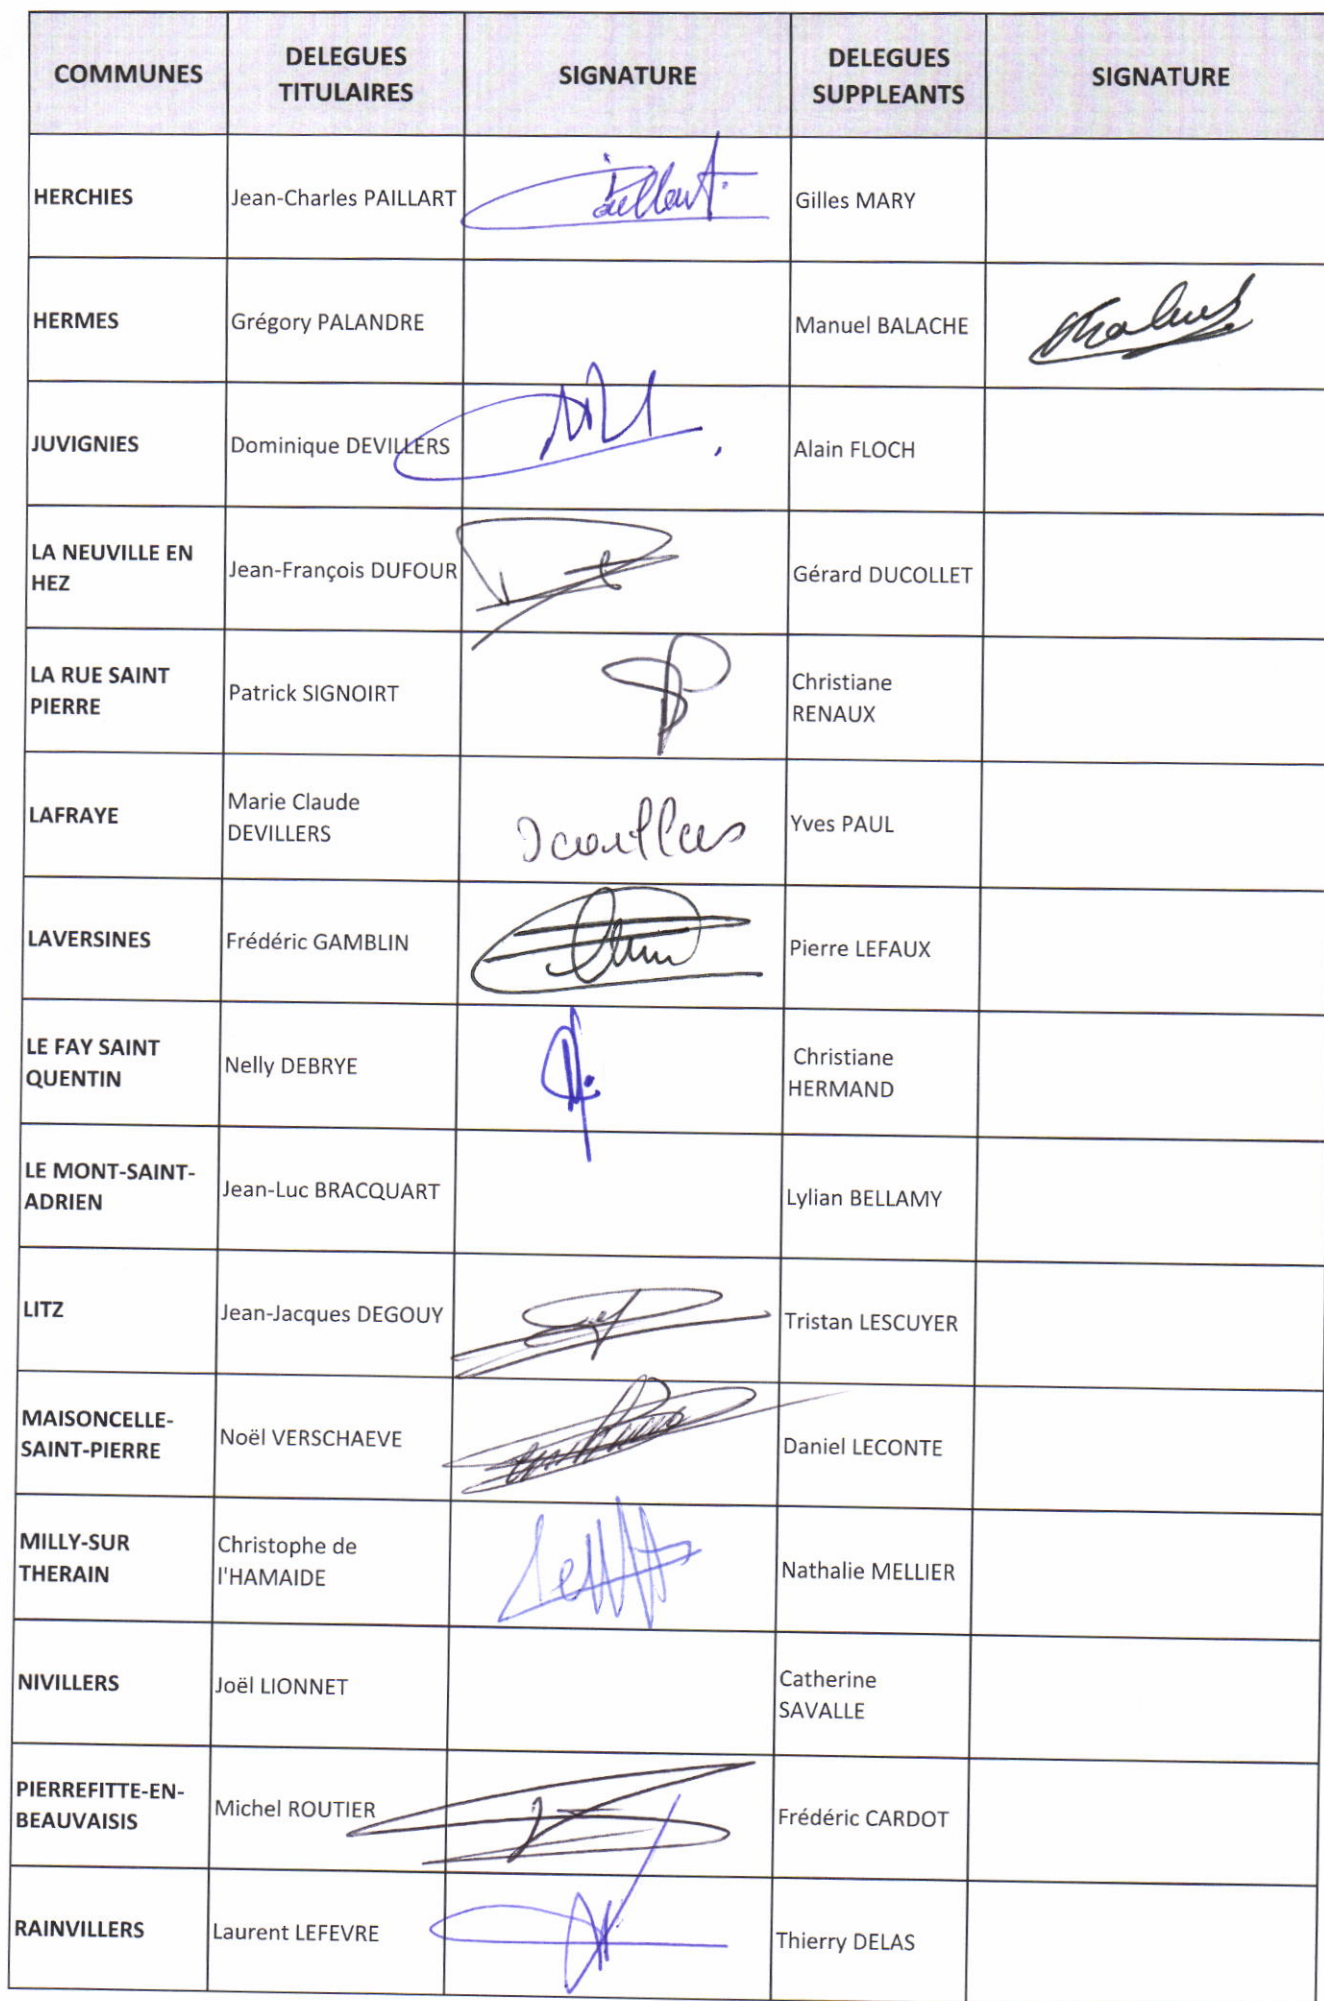 COMMUNES
DELEGUES
TITULAIRES
SIGNATURE
DELEGUES
SUPPLEANTS
SIGNATURE
HERCHIES
Jean-Charles PAILLART
Gilles MARY
HERMES
Grégory PALANDRE
Manuel BALACHE
JUVIGNIES
Dominique DEVILLERS
Alain FLOCH
LA NEUVILLE EN
HEZ
Jean-François DUFOUR
Gérard DUCOLLET
LA RUE SAINT
PIERRE
Patrick SIGNOIRT
Christiane
RENAUX
LAFRAYE
Marie Claude
DEVILLERS
Yves PAUL
LAVERSINES
Frédéric GAMBLIN
Pierre LEFAUX
LE FAY SAINT
QUENTIN
Nelly DEBRYE
Christiane
HERMAND
LE MONT-SAINT-
ADRIEN
Jean-Luc BRACQUART
Lylian BELLAMY
LITZ
Jean-Jacques DEGOUY
Tristan LESCUYER
MAISONCELLE-
SAINT-PIERRE
Noël VERSCHAEVE
Daniel LECONTE
MILLY-SUR
THERAIN
Christophe de
l'HAMAIDE
Nathalie MELLIER
NIVILLERS
Joël LIONNET
Catherine
SAVALLE
PIERREFITTE-EN-
BEAUVAISIS
Michel ROUTIER
Frédéric CARDOT
RAINVILLERS
Laurent LEFEVRE
Thierry DELAS